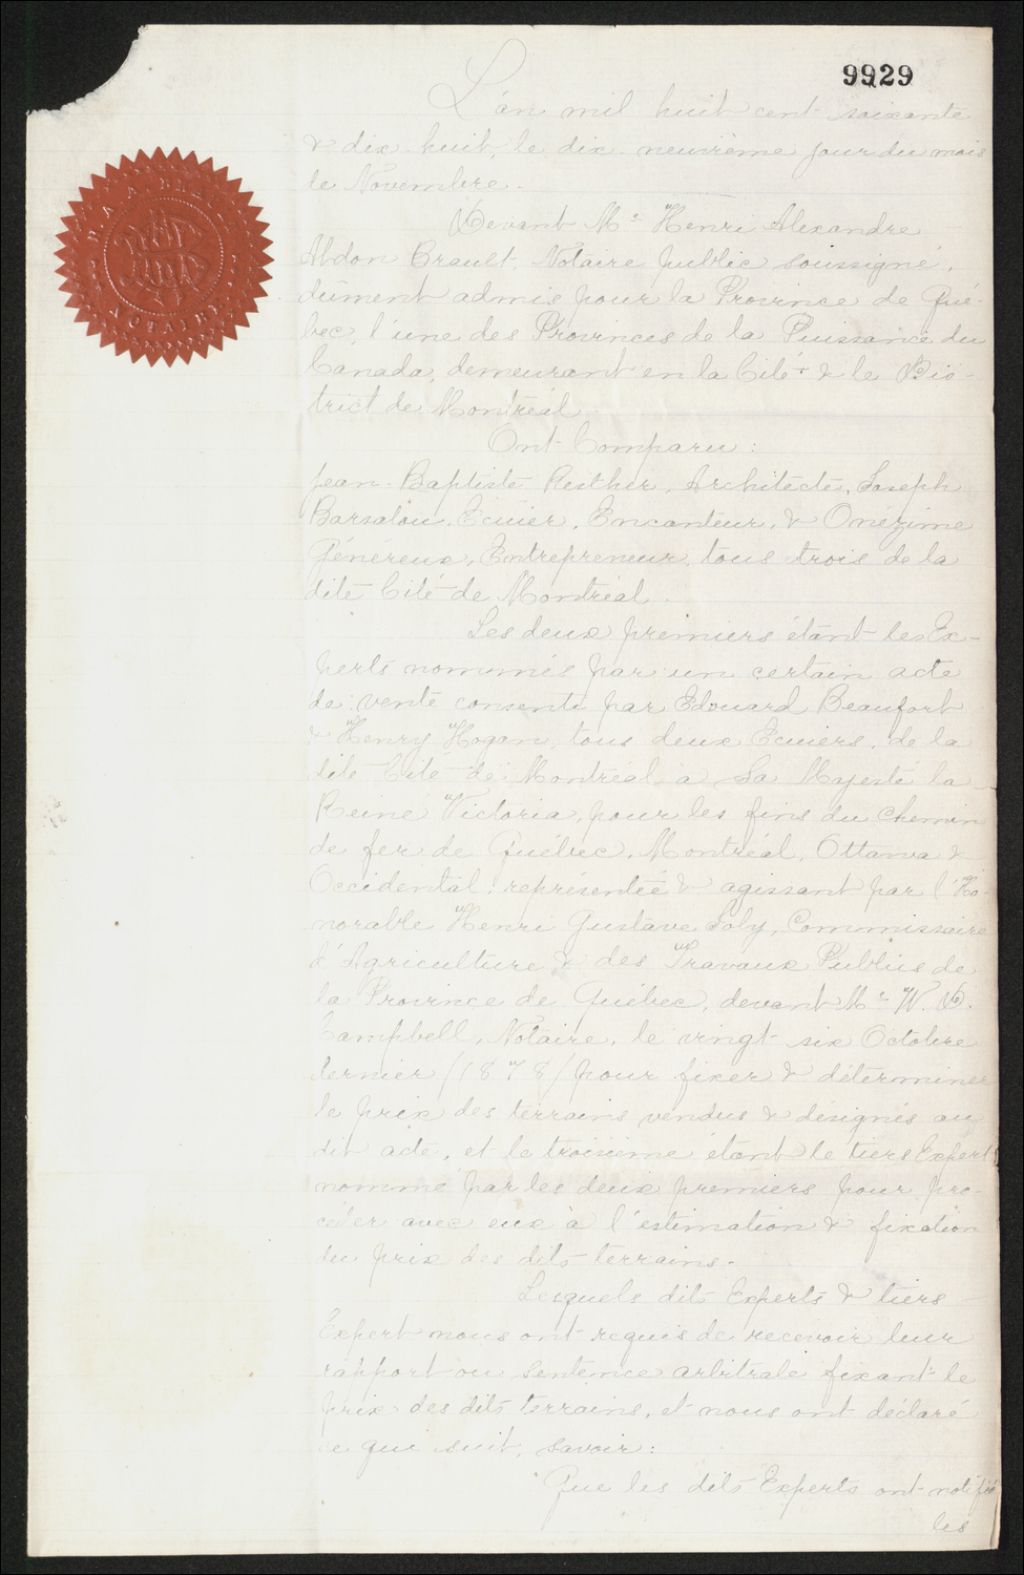 9929
L'an mil huit cent soixante
& dix huit, le dix neuvième jour du mois
de Novembre.
Devant Mᵉ Henri Alexandre
Abdon Brault, Notaire public soussigné,
dûment admis pour la Province de Qué-
bec, l'une des Provinces de la Puissance du
Canada, demeurant en la Cité & le Dis-
trict de Montréal.
Ont Comparu:
Jean-Baptiste Resther, Architecte, Joseph
Barsalou, Ecuier, Encanteur, & Onézime
Généreux, Entrepreneur, tous trois de la
dite Cité de Montréal.
Les deux premiers étant les Ex-
perts nommés par un certain acte
de vente consenti par Edouard Beaufort
& Henry Hogan, tous deux Ecuiers, de la
dite Cité de Montréal à Sa Majesté la
Reine Victoria, pour les fins du Chemin
de fer de Québec, Montréal, Ottawa &
Occidental: représentée & agissant par l'Ho-
norable Henri Gustave Joly, Commissaire
d'Agriculture & des Travaux Publics de
la Province de Québec, devant Mᵉ W. D.
Campbell, Notaire, le vingt six Octobre
dernier /1878/ pour fixer & déterminer
le prix des terrains vendus & désignés au
dit acte, et le troisième étant le tiers Expert
nommé par les deux premiers pour pro-
céder avec eux à l'estimation & fixation
du prix des dits terrains.
Lesquels dits Experts & tiers
Expert nous ont requis de recevoir leur
rapport ou sentence arbitrale fixant le
prix des dits terrains, et nous ont déclaré
ce que suit, savoir:
Que les dits Experts ont notifié
les
NOTAIRE